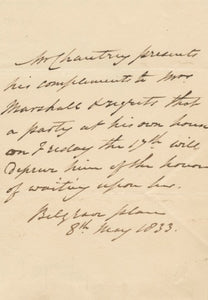 Mr Chantrey presents
his compliments to Mrs
Marshall & regrets that
a party at his own house
on Friday the 17th will
deprive him of the honor
of waiting upon her.
Belgrave place
8th May 1833.